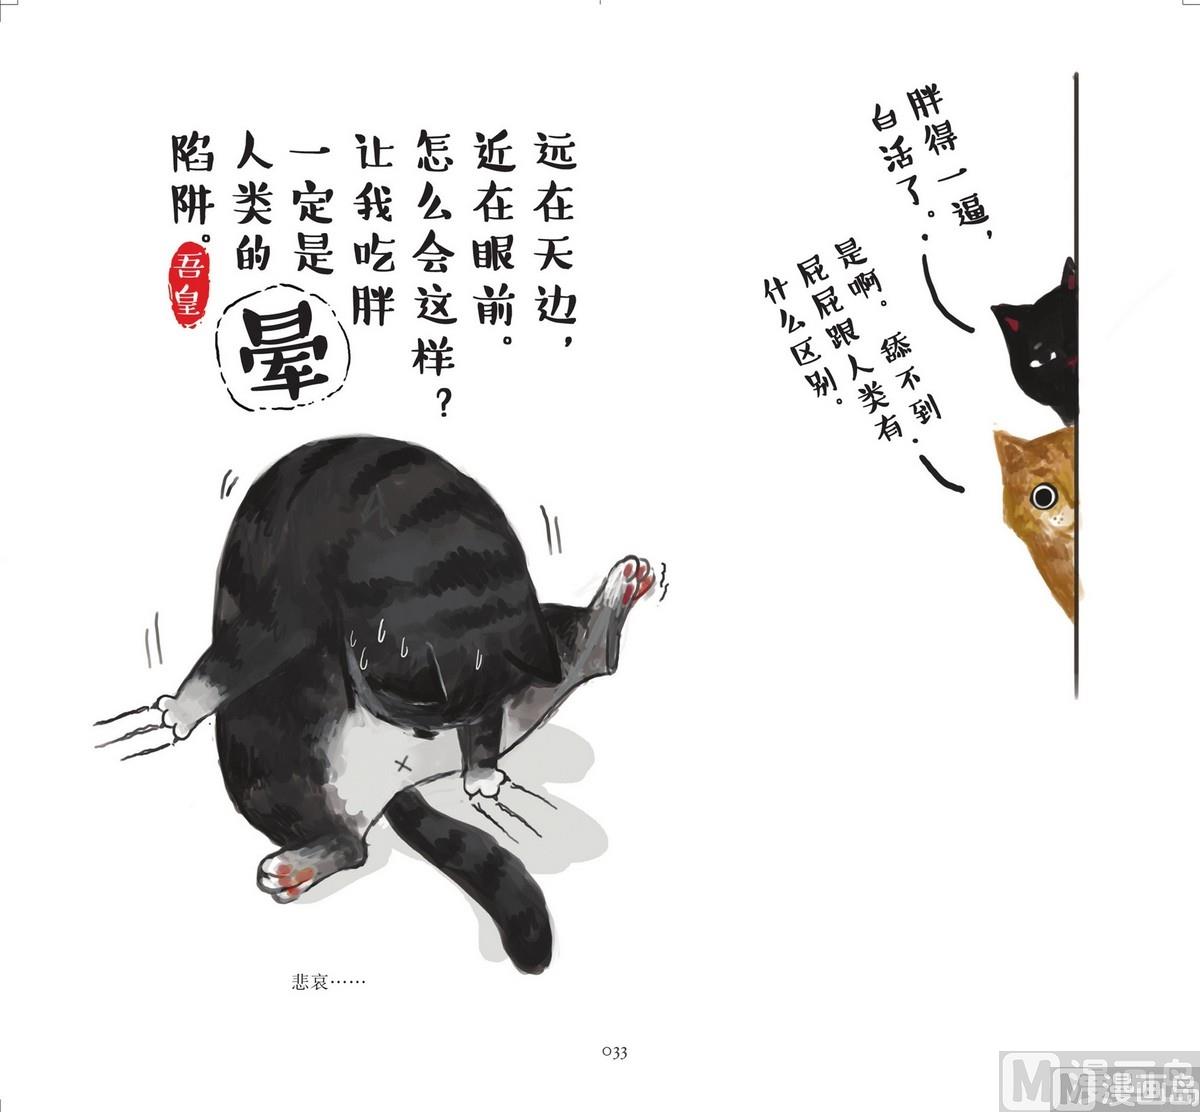 远在天边，
近在眼前。
怎么会这样？
让我吃胖
一定是
人类的
陷阱。
吾皇
晕
胖得一逼，
白活了。
舔不到
是啊。
屁屁跟人类有
什么区别。
悲哀……
033
漫画岛
M漫画岛